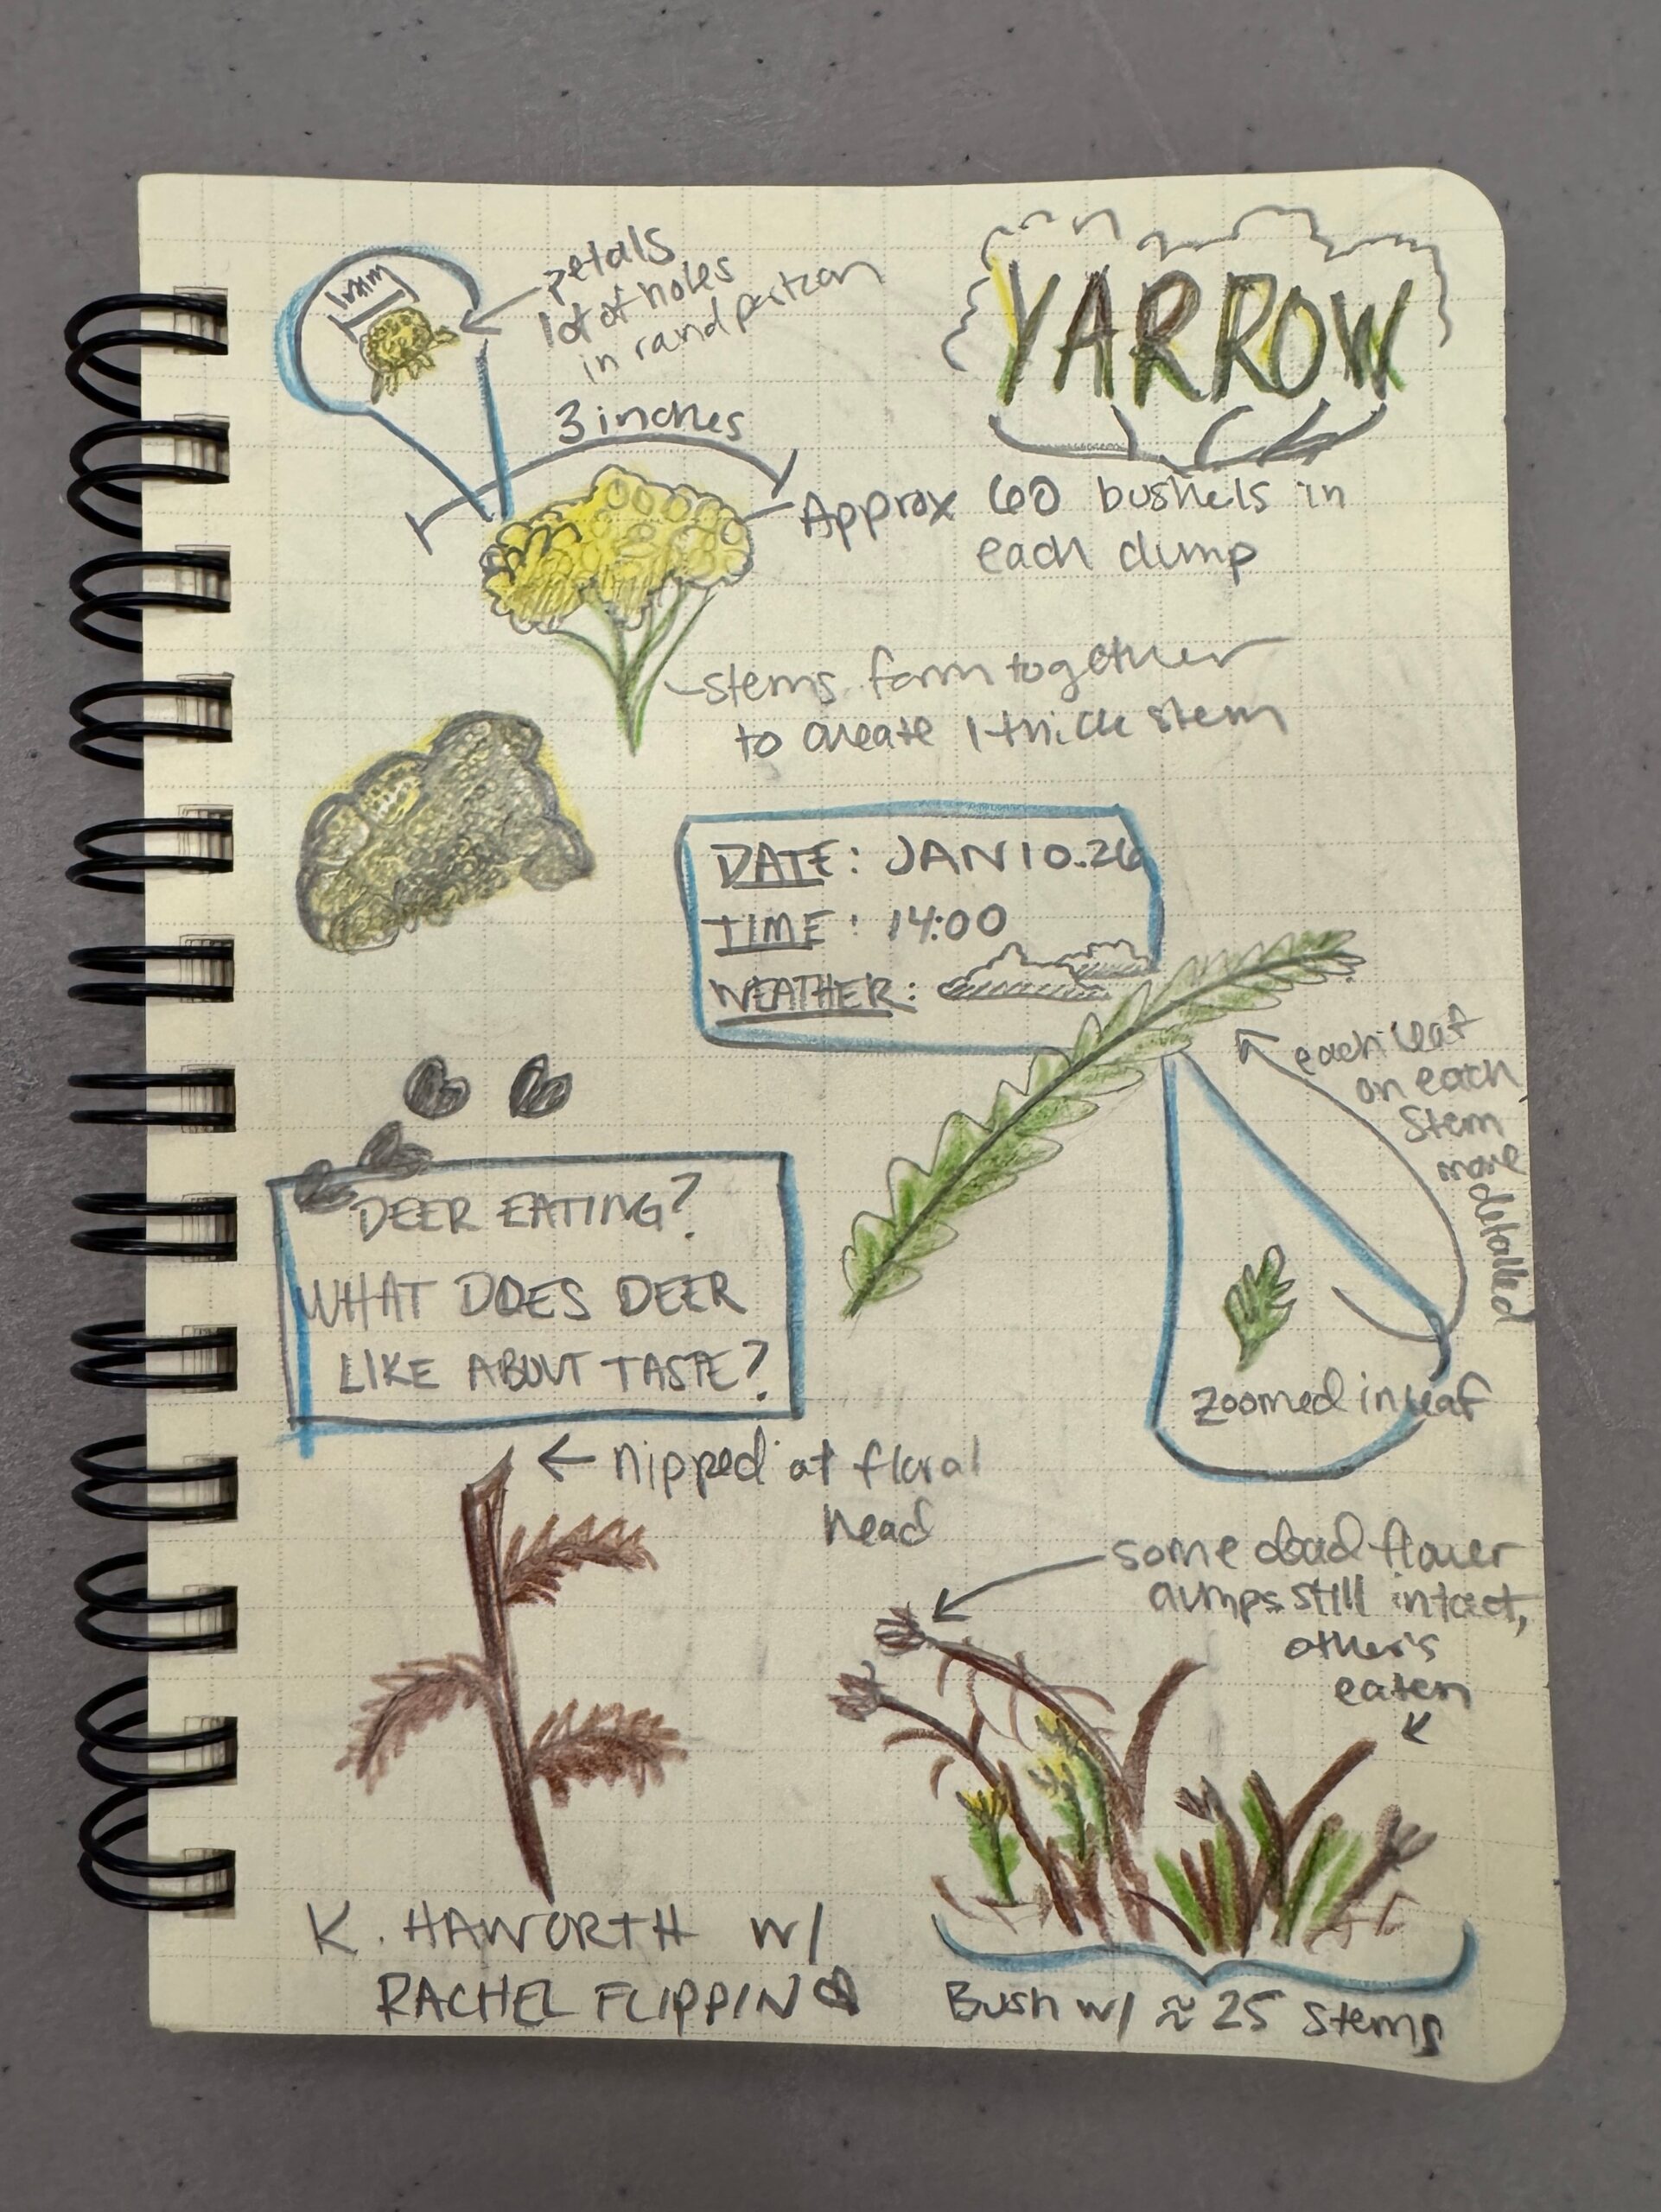 YARROW
1mm
petals
lot of holes
in rand
3 inches
Approx 60 bushels in
each clump
stems form together
to create 1 thick stem
DATE: JAN 10.26
TIME: 14:00
WEATHER:
each leaf
on each
stem
more
detailed
zoomed in leaf
DEER EATING?
WHAT DOES DEER
LIKE ABOUT TASTE?
nipped at floral
head
some dead flower
clumps still intact,
other's
eaten
K. HAWORTH W/
RACHEL FLIPPIN
Bush w/ ≈ 25 stems